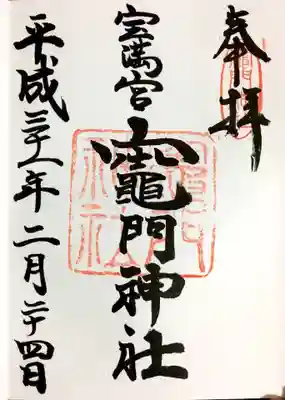 奉拝
宝満宮
竈門神社
平成三十一年二月二十四日